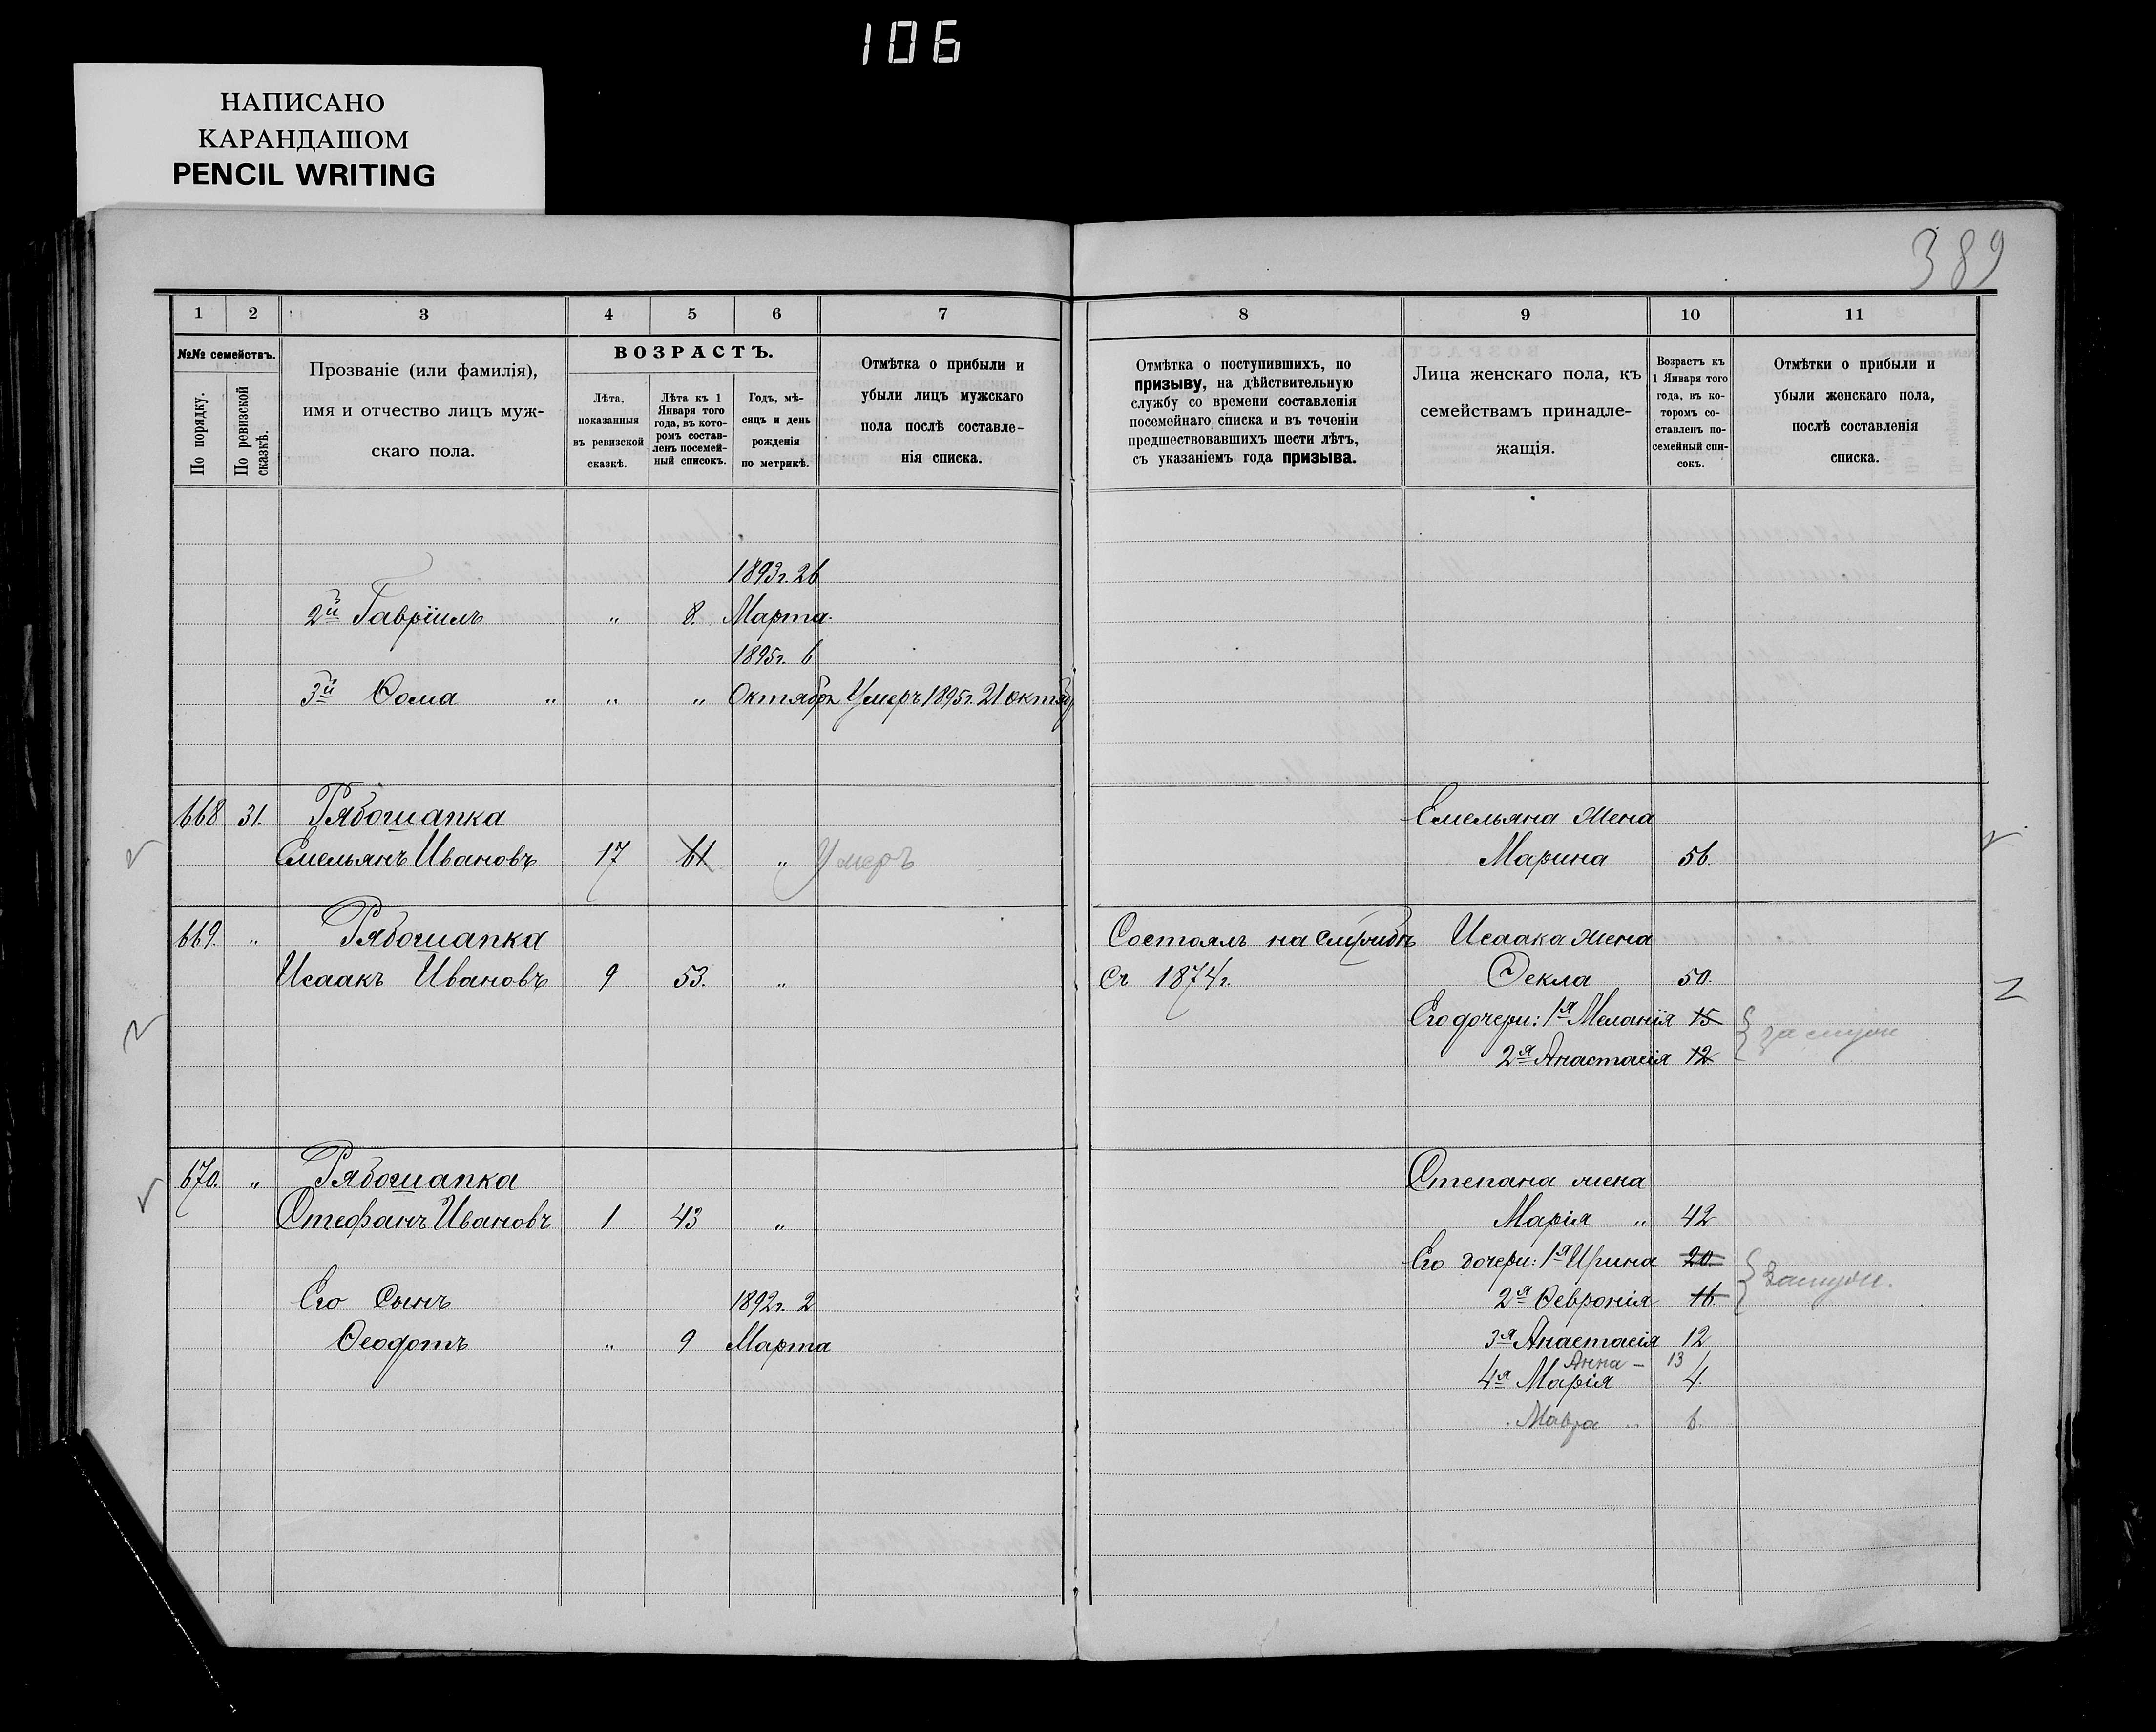 106
НАПИСАНО
КАРАНДАШОМ
PENCIL WRITING
389
1 2 3 4 5 6 7
№№ семействъ.
По порядку.
По ревизской сказкѣ.
Прозваніе (или фамилія),
имя и отчество лицъ муж-
скаго пола.
ВОЗРАСТЪ.
Лѣта,
показанныя
въ ревизской
сказкѣ.
Лѣта къ 1
Января того
года, въ кото-
ромъ состав-
ленъ посемей-
ный списокъ.
Годъ, мѣ-
сяцъ и день
рожденія
по метрикѣ.
Отмѣтка о прибыли и
убыли лицъ мужскаго
пола послѣ составле-
нія списка.
1893г. 26
2й Гавріилъ " 8. Марта.
1895г. 6
3й Ѳома " " " Октябр Умеръ 1895г. 21 октяб
668 31. Рябошапка
Емельянъ Ивановъ 17 61 " Умеръ
669. " Рябошапка
Исаакъ Ивановъ 9 53. "
670. " Рябошапка
Стефанъ Ивановъ 1 43 "
Его Сынъ 1892г. 2
Ѳеодотъ " 9 Марта
8 9 10 11
Отмѣтка о поступившихъ, по
призыву, на дѣйствительную
службу со времени составленія
посемейнаго списка и въ теченіи
предшествовавшихъ шести лѣтъ,
съ указаніемъ года призыва.
Лица женскаго пола, къ
семействамъ принадле-
жащія.
Возрастъ къ
1 Января того
года, въ ко-
торомъ со-
ставленъ по-
семейный спи-
сокъ.
Отмѣтки о прибыли и
убыли женскаго пола,
послѣ составленія
списка.
Емельяна жена
Марина 56.
Состоялъ на службѣ Исаака жена
съ 1874г. Ѳекла 50.
Его дочери: 1я Меланія 15
2я Анастасія 12
замуж
Степана жена
Марія " 42
Его дочери: 1я Ирина 20
2я Ѳевронія 16
Замуж.
3я Анастасія 12
Анна - 13
4я Марія 4.
Мавра " 6.